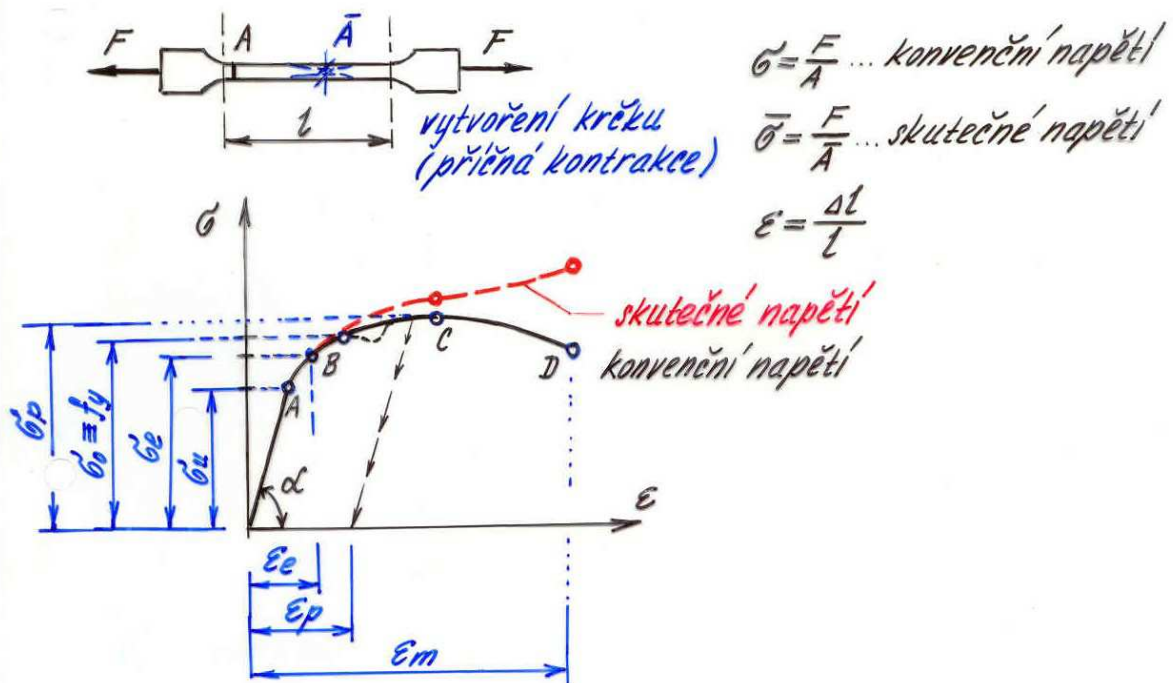 F
A
Ā
F
l
vytvoření krčku
(příčná kontrakce)
σ = F/A ... konvenční napětí
σ̄ = F/Ā ... skutečné napětí
ε = Δl/l
σ
skutečné napětí
konvenční napětí
A
B
C
D
σp
σ0 ≡ fy
σe
σu
α
ε
εe
εp
εm